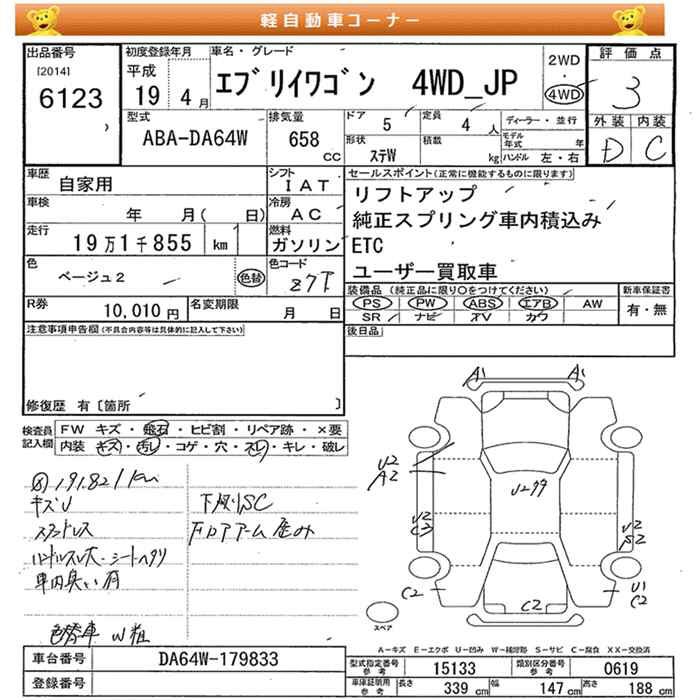 軽自動車コーナー
出品番号
[2014]
6123
初度登録年月
平成
19 4月
車名・グレード
エブリイワゴン 4WD_JP
2WD
・
4WD
評価点
3
外装 内装
D C
型式
ABA-DA64W
排気量
658
CC
ドア
5
定員
4人
ディーラー・並行
形状
ステW
積載
kg
モデル年式 年
ハンドル 左・右
車歴
自家用
シフト
IAT
車検
年 月( 日)
冷房
AC
走行
19万1千855 km
燃料
ガソリン
色
ベージュ2
色替
色コード
Z7T
R券
10,010円
名変期限
月 日
セールスポイント(正常に機能するものに限ります)
リフトアップ
純正スプリング車内積込み
ETC
ユーザー買取車
装備品 (純正品に限り○をつけてください)
PS PW ABS エアB AW
SR ナビ TV カワ
新車保証書
有・無
後日品
注意事項申告欄(不具合内容等は具体的に記入して下さい)
修復歴 有〔箇所 〕
検査員記入欄
FW キズ・飛石・ヒビ割・リペア跡・×要
内装 キズ・汚レ・コゲ・穴・スレ・キレ・破レ
191821km
キズU
下廻りSC
スタッドレス
FロアアームE歪み
車内臭い有
色替車 W粗
A1 A1
U2
A2
U299
U2
C3
U2
S2
C2
C2
U1
C2
スペア
A-キズ E-エクボ U-凹み W-補修跡 S-サビ C-腐食 XX-交換済
車台番号
DA64W-179833
登録番号
型式指定番号
参考
15133
類別区分番号
参考
0619
車庫証明用
参考
長さ 339cm 幅 147cm 高さ 188cm